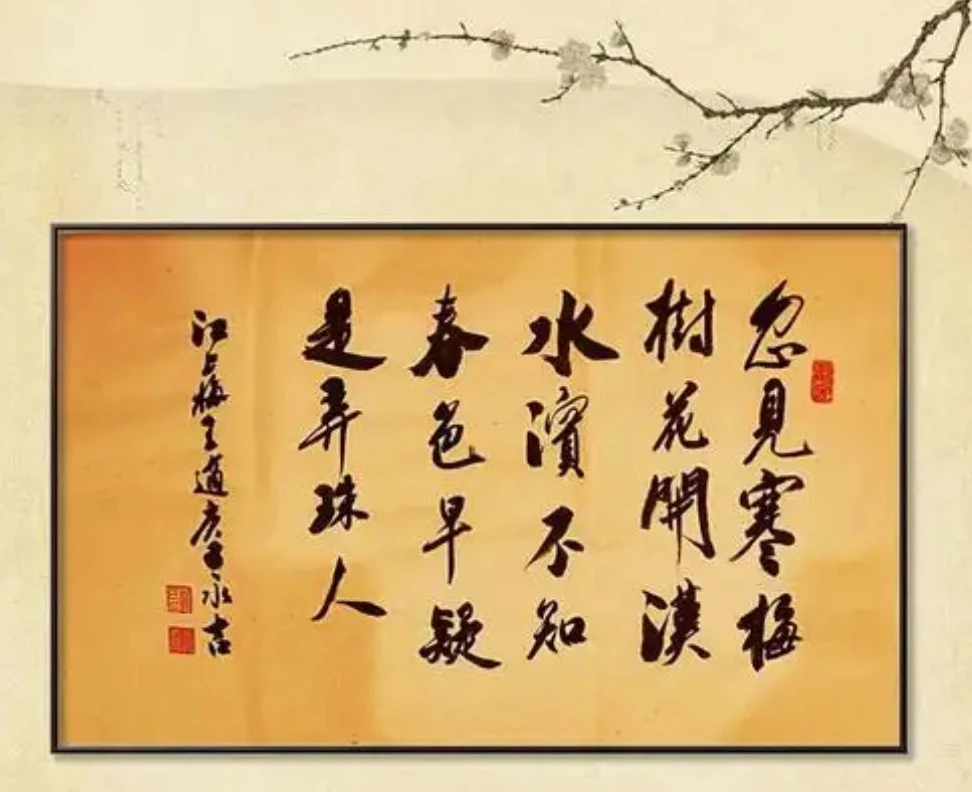 忽見寒梅
樹花開漢
水濱不知
春色早疑
是弄珠人
江上梅王適庚子永吉